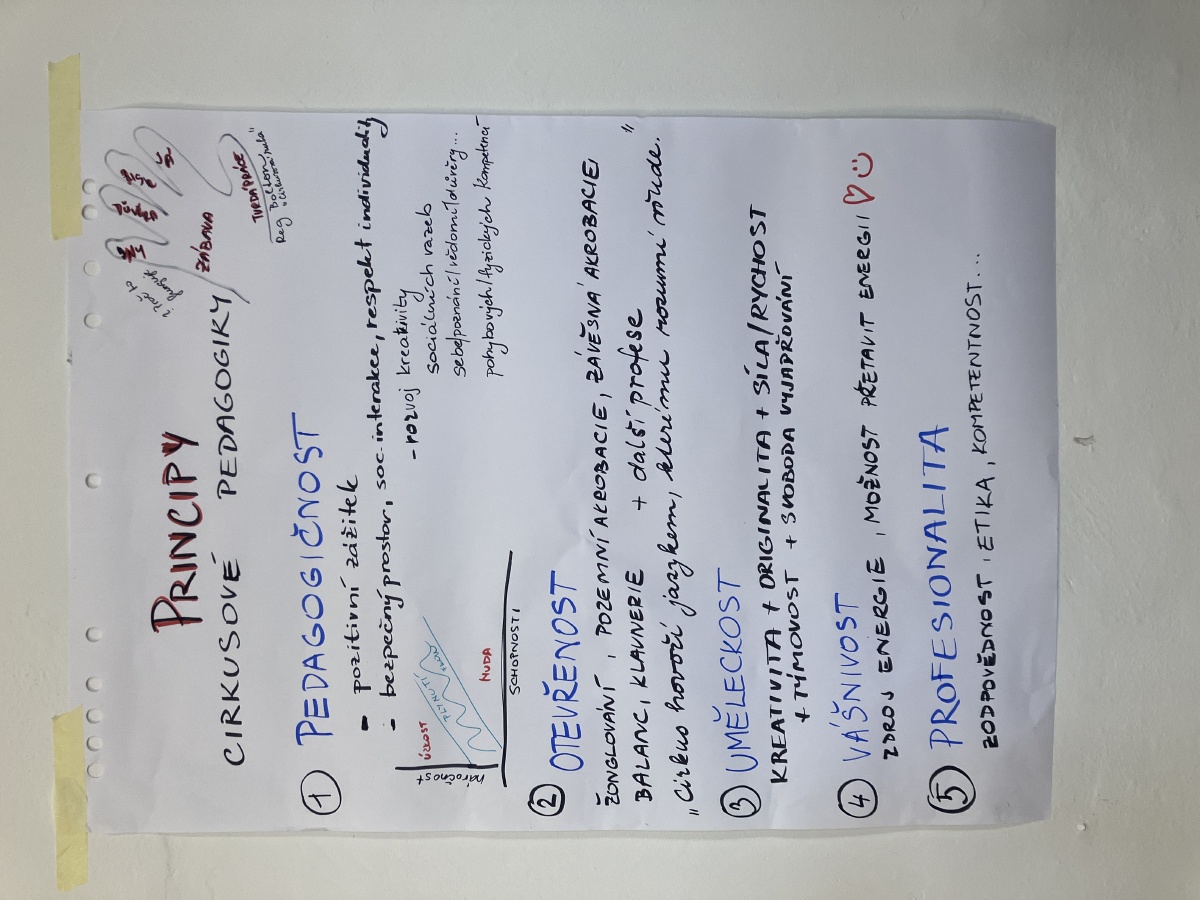 PRINCIPY
CIRKUSOVÉ PEDAGOGIKY
? Proč to funguje
ZÁBAVA
TVRDÁ PRÁCE
Reg Bolton
"cirkusová ruka"
1 PEDAGOGIČNOST
- pozitivní zážitek
- bezpečný prostor, soc. interakce, respekt individuality
- rozvoj kreativity
sociálních vazeb
sebe/poznání/vědomí/důvěry...
pohybových/fyzických kompetencí
náročnost
ÚZKOST
PLYNUTÍ
NUDA
SCHOPNOSTI
2 OTEVŘENOST
ŽONGLOVÁNÍ, POZEMNÍ AKROBACIE, ZÁVĚSNÁ AKROBACIE,
BALANC, KLAVNERIE + další profese
"Cirkus hovoří jazykem, kterému rozumí všude."
3 UMĚLECKOST
KREATIVITA + ORIGINALITA + SÍLA/RYCHOST
+ TÝMOVOST + SVOBODA VYJADŘOVÁNÍ
4 VÁŠNIVOST
ZDROJ ENERGIE, MOŽNOST PŘETAVIT ENERGII ♡☺
5 PROFESIONALITA
ZODPOVĚDNOST, ETIKA, KOMPETENTNOST...